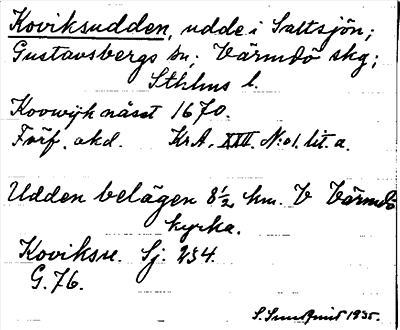 Koviksudden, udde i Saltsjön;
Gustavsbergs sn; Värmdö skg;
Sthlms l.
Koowijk näset 1670.
Förf. okd. KrA. XXII. N:o 1. lit. a.
Udden belägen 8 1/2 km. V Värmdö
kyrka.
Koviksu. Sj. 234.
G. 76.
S. Sundquist 1935.